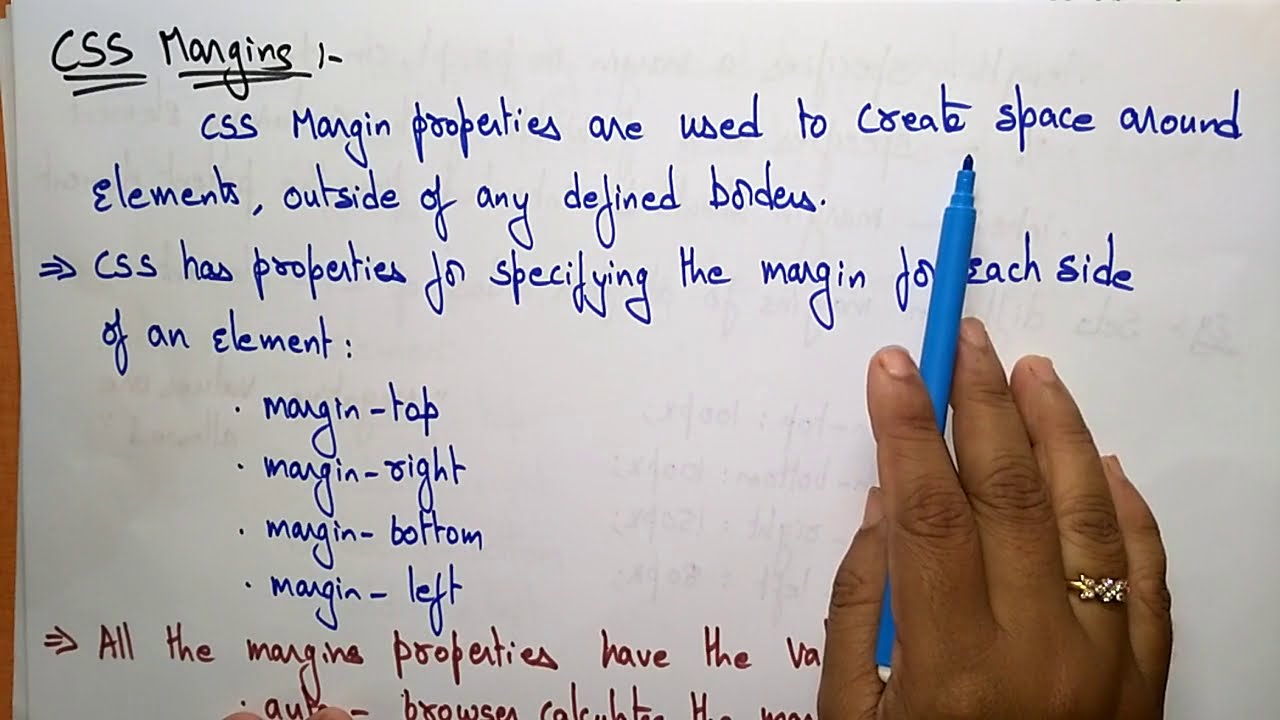 CSS Margins :-
CSS Margin properties are used to create space around
elements, outside of any defined borders.
⇒ CSS has properties for specifying the margin for each side
of an element :
· margin-top
· margin-right
· margin-bottom
· margin-left
⇒ All the margins properties have the
· auto - browser calculates the